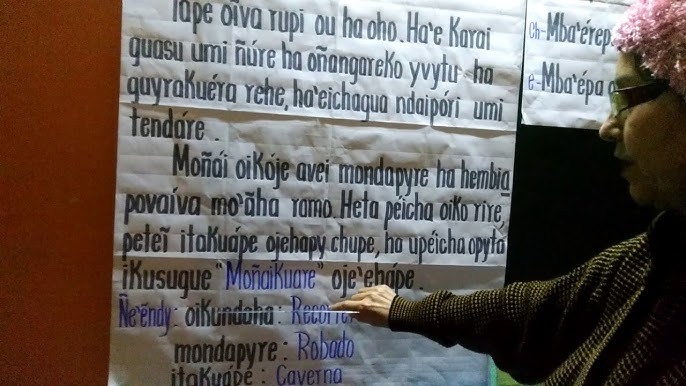 Tape oĩva rupi ou ha oho. Ha'e Karai
guasu umi ñúre ha oñangareko yvytu ha
guyrakuéra rehe, ha'eichagua ndaipóri umi
tendáre.
Moñái oikóje avei mondapyre ha hembia
povaíva mo'ãha ramo. Heta péicha oiko rire,
peteĩ itakuápe ojehapy chupe, ha upéicha opytá
ikusugue "Moñaikuare" oje'ehápe.
Ñe'ẽndy: oikundaha:
mondapyre: Robado
itakuápe: Caverna
ch- Mba'érep
e- Mba'épa